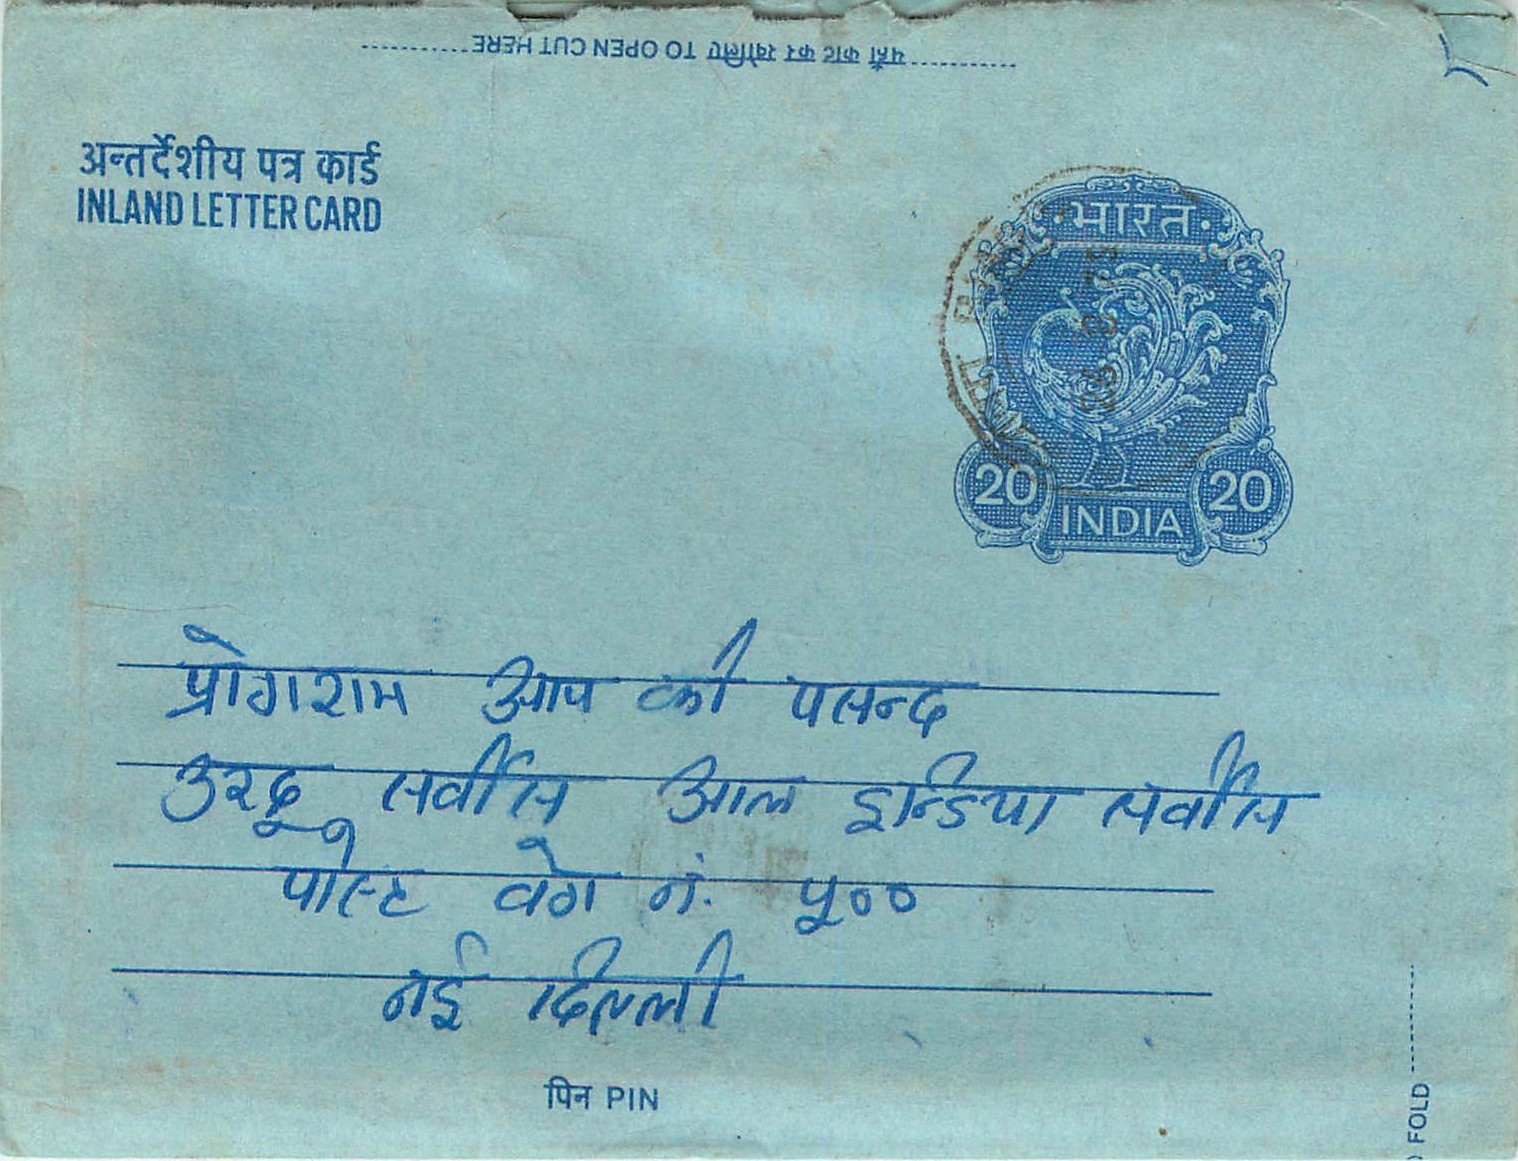 यहाँ काट कर खोलिए TO OPEN CUT HERE
अन्तर्देशीय पत्र कार्ड
INLAND LETTER CARD
भारत
20 20
INDIA
प्रोगराम आप की पसन्द
उरदू सर्वीस आल इन्डिया सर्वीस
पोस्ट वेग नं. ५००
नई दिल्ली
पिन PIN
FOLD